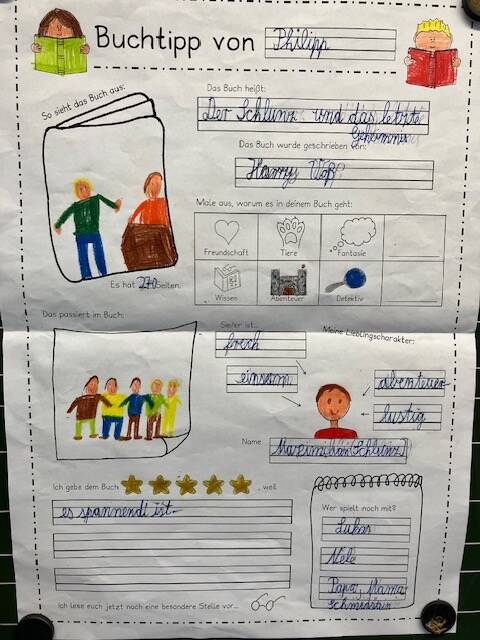 Buchtipp von Philipp
So sieht das Buch aus:
Das Buch heißt:
Der Schlunz und das letzte
Geheimnis
Das Buch wurde geschrieben von:
Harry Voß
Male aus, worum es in deinem Buch geht:
Freundschaft
Tiere
Fantasie
Wissen
Abenteuer
Detektiv
Es hat 270 Seiten.
Das passiert im Buch:
Sie/er ist...
Meine Lieblingscharakter:
frech
einsam
abenteuer
lustig
Name
Maximilian (Schlunz)
Ich gebe dem Buch , weil
es spannend ist.
Wer spielt noch mit?
Lukas
Nele
Papa, Mama
Schmidtstein
Ich lese euch jetzt noch eine besondere Stelle vor...